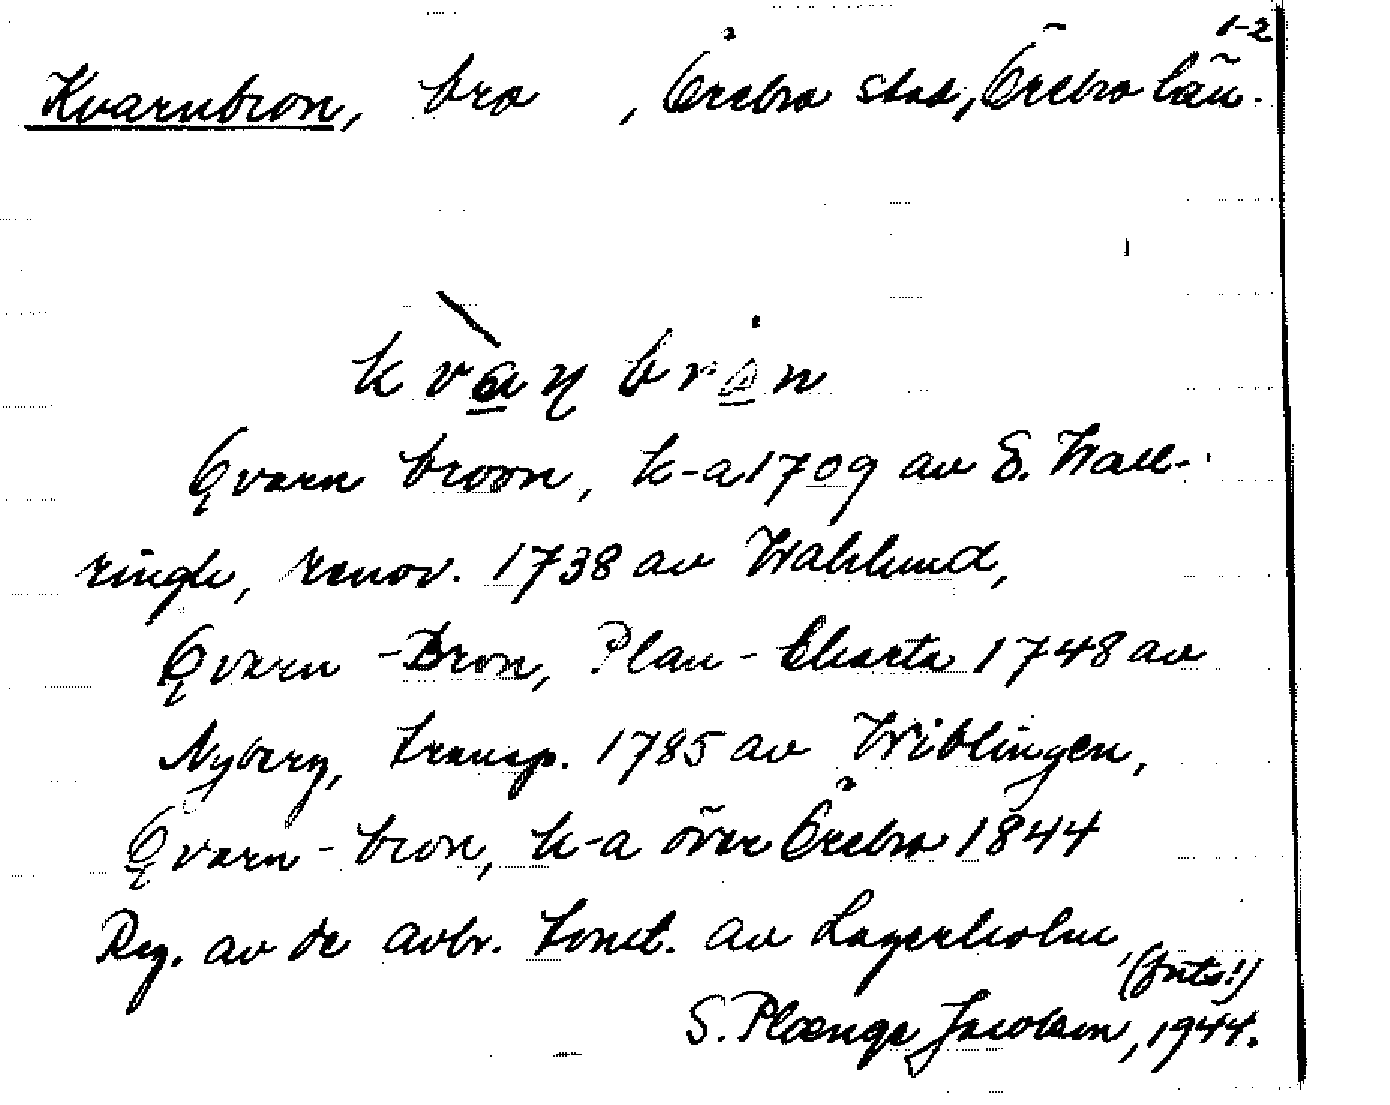 1-2
Kvarnbron, bro , Örebro stad, Örebro län.
Qvarn broon, k-a 1709 av E. Wall-
ringh, renov. 1738 av Wahlund,
Qvarn-Bron, Plan-Charta 1748 av
Nyberg, transp. 1785 av Wiblingen,
Qvarn-bron, k-a över Örebro 1844
Reg. av de avbr. tomt. av Lagerholm
S. Plœnge Jacobson, 1944.